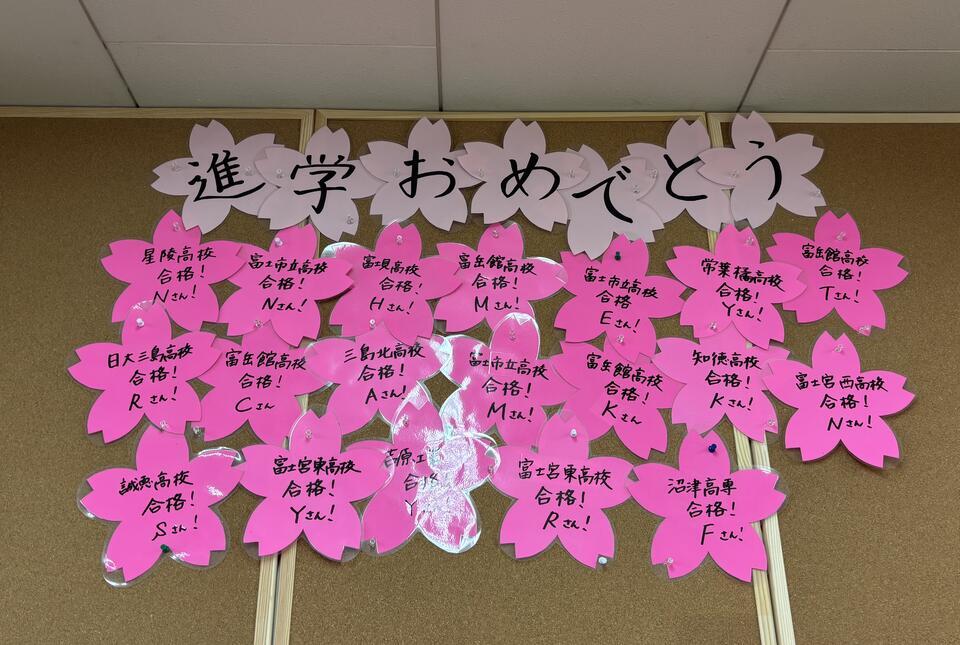 進学おめでとう
星陵高校
合格!
Nさん!
富士市立高校
合格!
Nさん!
富現高校
合格!
Hさん!
富岳館高校
合格!
Mさん!
富士市立高校
合格
Eさん!
常葉橘高校
合格!
Yさん!
富岳館高校
合格!
Tさん!
日大三島高校
合格!
Rさん!
富岳館高校
合格!
Cさん
三島北高校
合格!
Aさん!
富士市立高校
合格!
Mさん!
富岳館高校
合格!
Kさん
知徳高校
合格!
Kさん!
富士宮西高校
合格!
Nさん!
誠恵高校
合格!
Sさん!
富士宮東高校
合格!
Yさん!
吉原工
合格
Y
富士宮東高校
合格!
Rさん!
沼津高専
合格!
Fさん!